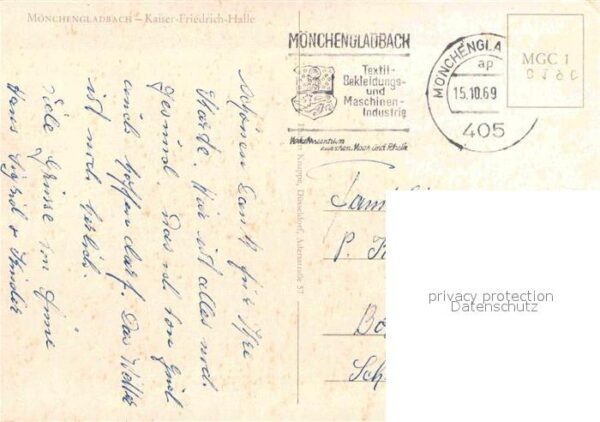 MÖNCHENGLADBACH – Kaiser-Friedrich-Halle
MÖNCHENGLADBACH
Textil-
Bekleidungs-
und
Maschinen-
Industrie
Verkehrszentrum
zwischen Maas und Rhein
MÖNCHENGLA
ap
15.10.69
405
MGC 1
Schönen Dank für Ihre
Karte. Hier ist alles noch
gesund. Das ich von Euch
auch hoffen darf. Das Wetter
ist noch herrlich.
Viele Grüsse
Hans Sigrid u Kinder
Knuppe, Düsseldorf, Adersstraße 57
Famil
P.
Bo
Sch
privacy protection
Datenschutz